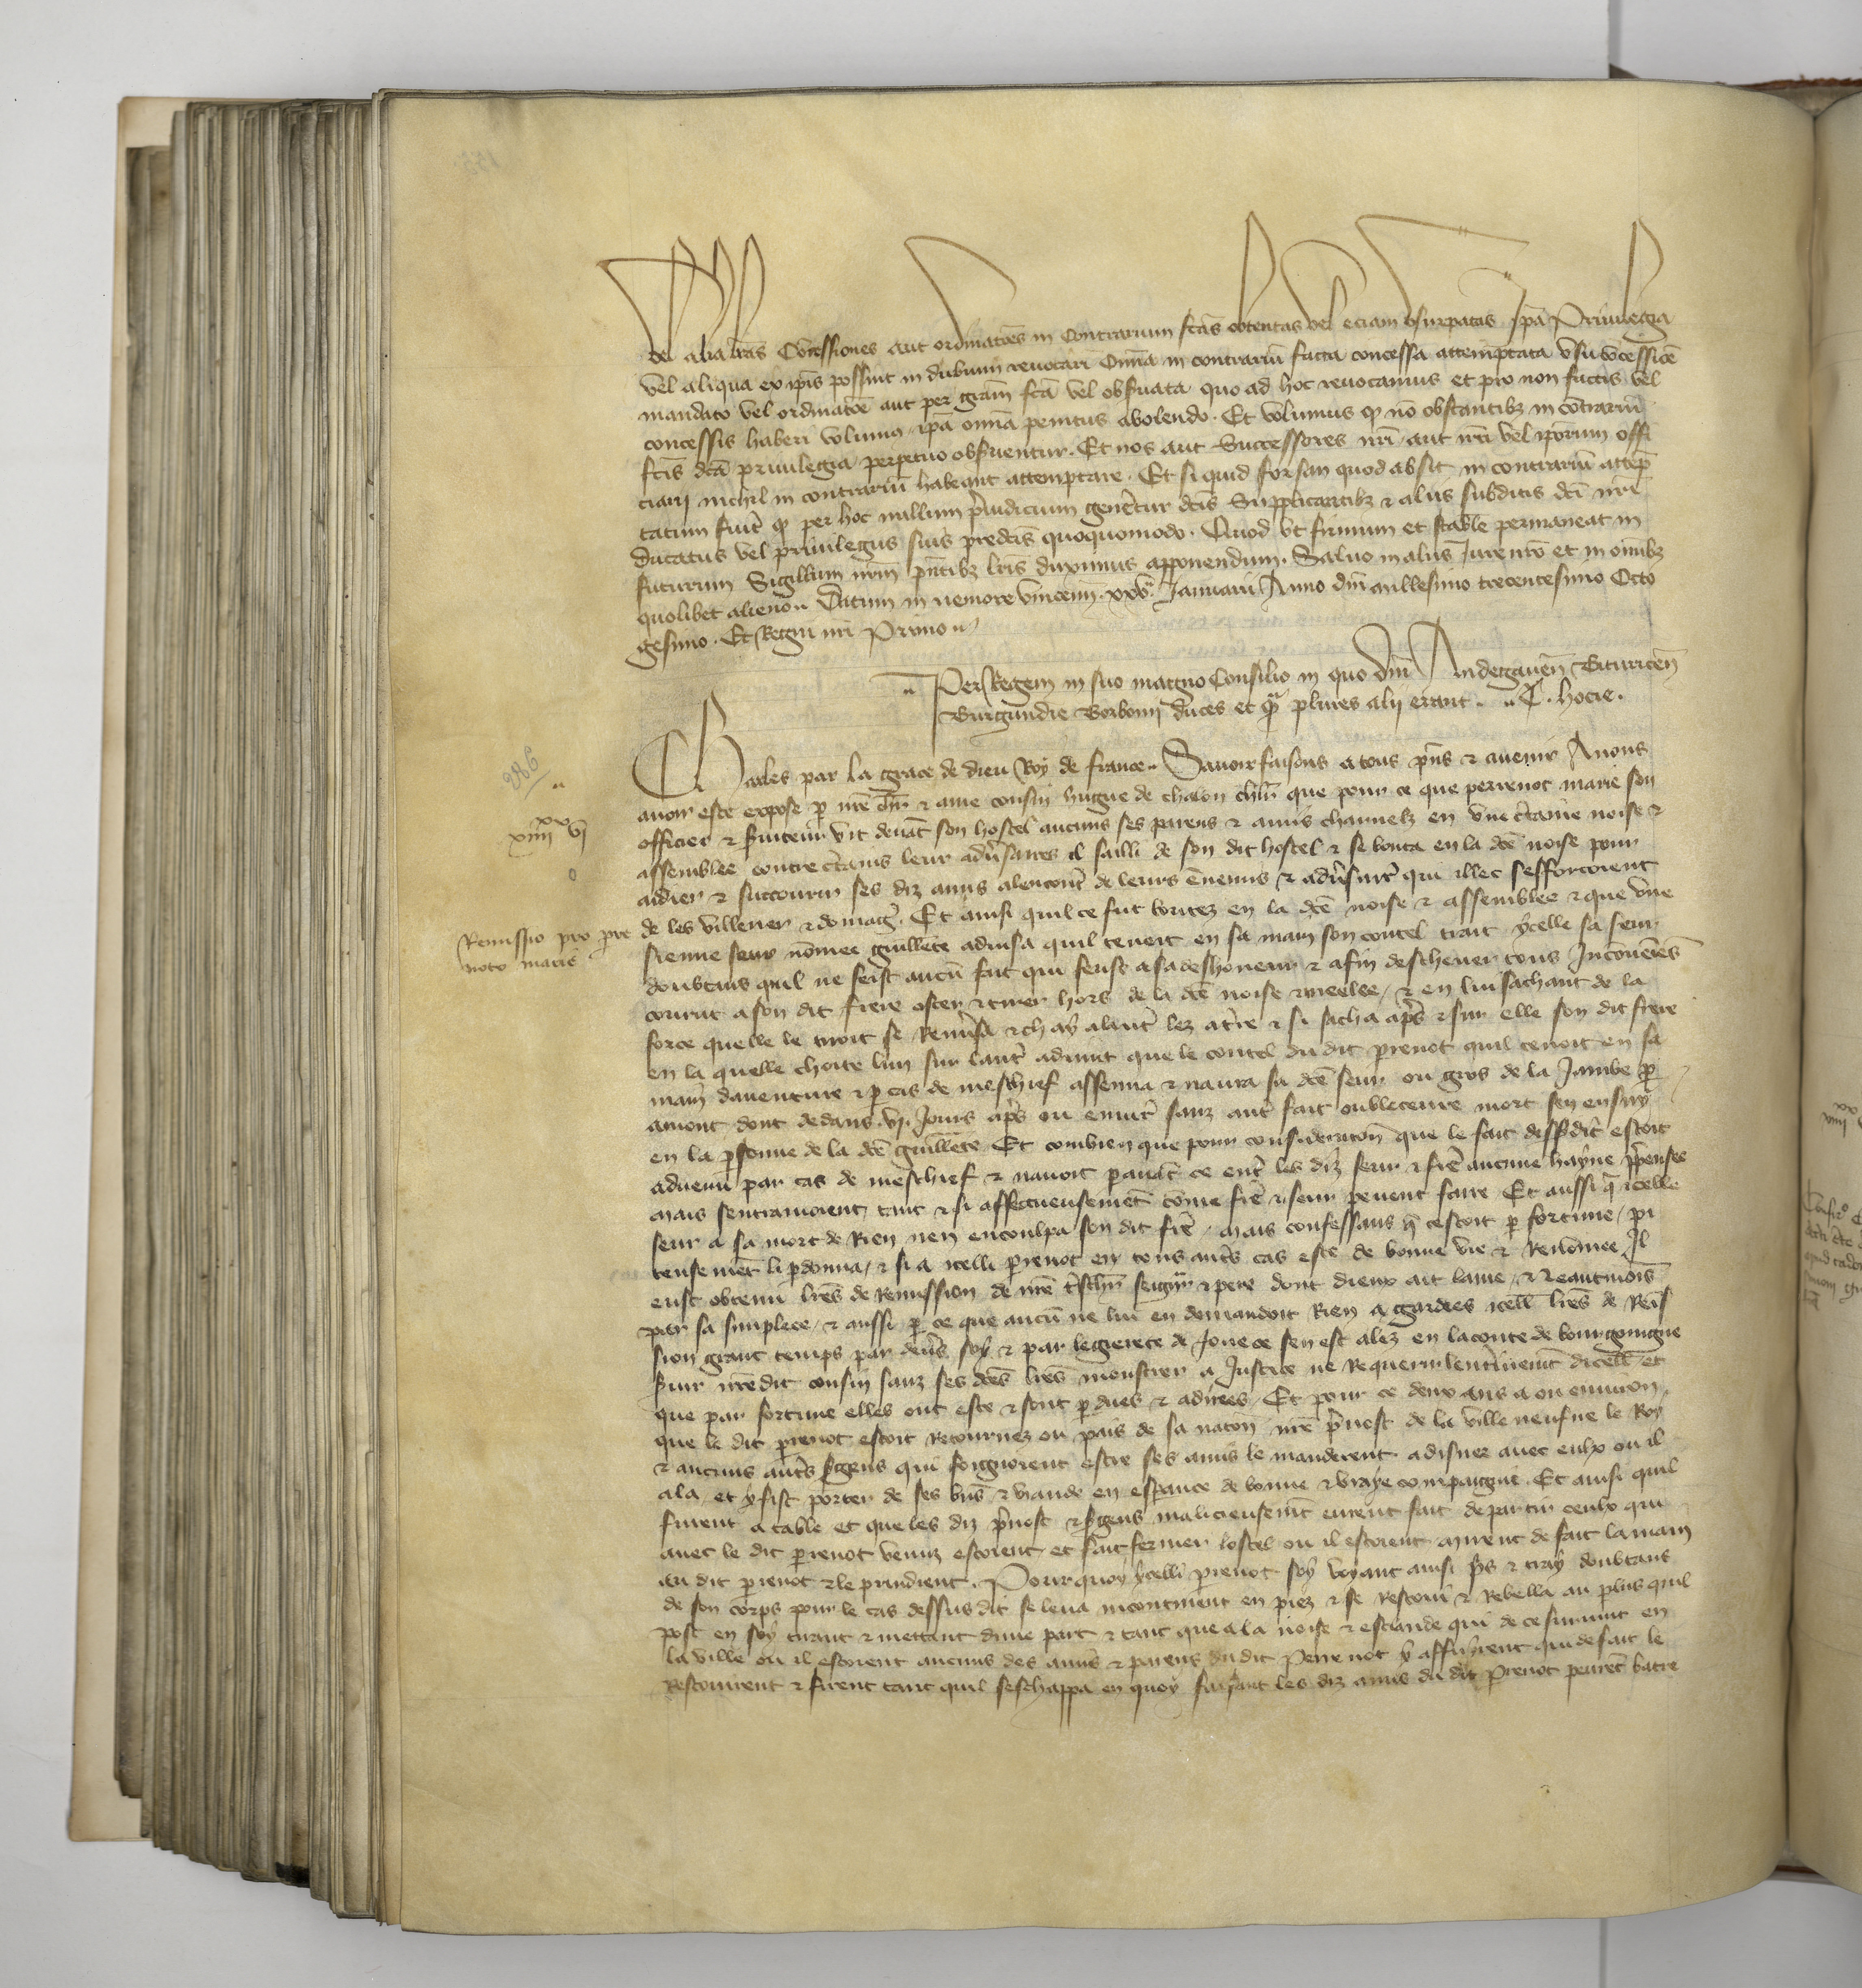 vel alias lras Concessiones aut ordinatões in Contrarium fcãs obtentas vel eciam usurpatas Ipã Privilegia
vel aliqua ex ipîs possint in dubium revocari Omia in contrariũ facta concessa attemptata usu concessiõe
mandato vel ordinatõe aut per gram fcã vel observata quo ad hoc revocamus et pro non factis vel
concessis haberi volumus ipã omia penitus abolendo. Et volumus q nõ obstantibz in cõtrariũ
fcîs dcã privilegia perpetuo observentur. Et nos aut Successores nrî aut nrî vel ipõrum offi
ciarij nichil in contrariũ habeant attemptare. Et si quid forsan quod absit in contrariũ attẽp
tatum fuit q per hoc nullum p̃iudicium gen̾etur dcîs Supplicantibz & aliis subditis dcî nrî
ducatus vel privilegiis suis predcîs quoquomodo. Quod ut firmum et stabile permaneat in
futurum Sigillum nrm pñtibz lrîs duximus apponendum. Salvo in aliis Jure nrõ et in omibz
quolibet alieno. Datum in nemore vincenn. xxv. Januarii Anno dni millesimo trecentesimo Octo
gesimo. Et Regni nri Primo
Per Regem in suo magno Consilio in quo dni Andegaven Bituricen
Burgundie Borbonij duces et qm plures alij erant. T. hocie.
Charles par la grace de dieu Roy de france. Savoir faisons a tous p̃ns & avenir A nous
avoir este expose p nre chr & ame cousin hugue de chalon chlr que pour ce que perrenot marie son
officier & s̃viteur vit devãt son hostel aucuns ses parens & amis charnelz en une c̃taine noise &
assemblee contre c̃tains leur adv̾saires il sailli de son dit hostel & se bouta en la dcẽ noise pour
aidier & succourir ses diz amis alencont de leurs ẽnemis & adv̾sair̾ qui illec sefforcoient
de les villener & domag̾. Et ainsi quil ce fut boutez en la dcẽ noise & assemblee & que une
sienne seur nõmee guillete advisa quil tenoit en sa main son coutel trait ycelle sa seur
doubtans quil ne feist aucũ fait qui feust a sa deshoneur & afin descheuer tous Incõveñẽs
courut a son dit frere oster & tirer hors de la dcẽ noise & meslee / & en lui sachant de la
force quelle le tiroit se renv̾sa & chay alant lez at̾re & si sacha aps & sur elle son dit frere
en la quelle choite lun sur laut̾ advint que le coutel du dit prenot quil tenoit en sa
main daventure & p cas de meschief assena & navra sa dcẽ seur ou gros de la Jambe p
amont / dont dedans .vi. Jours aps ou envir̾ sanz aut̾ fait ou blecenre mort sen ensuy
en la psonne de la dcẽ guillete Et combien que pour consideration que le fait dessusdit estoit
advenu par cas de meschief & navoit pavãt ce ent̾ les diz seur & frẽ aucune hayne p̃pensee
mais sentramoient tant & si affectueusemẽt cõme frẽ & seur pevent faire Et aussi q̃ icelle
seur a sa mort de Rien nen encoulpa son dit frẽ / mais confessans q̃ cestoit p fortune / pi
teusemẽt li pdonna / & si a icelli prenot en tous aut̾s cas este de bonne vie & Renõmee Il
eust obtenu lrẽs de Remission de nrẽ t̾schr̃ seigr̃ & pere dont dieux ait lame / & Neantmois
par sa simplece / & aussi p ce que aucũ ne lui en demandoit Rien a gardees icell lrẽs de Reis
sion grant temps par devs soy & par legierete de Jonece sen est alez en la conte de bourgoingne
s̃vir nredit cousin sanz ses dcẽs lrẽs monstrer a Justice ne Requerir lent̾inemt dicell et
que par fortune elles ont este & sont pdues & adirees. Et pour ce deux ans a ou environ
que le dit prenot estoit Retournez ou pais de sa nation nrẽ p̃vost de la ville neufve le Roy
& aucuns aut̾s s̃gens qui foignoient estre ses amis le manderent a disner avec eulx ou il
ala, et y fist porter de ses biens & viande en espance de bonne & vraye compaignie. Et ainsi quil
furent a table et que les diz p̃vost & s̃gens malicieusemt eurent fait departir ceulx qui
avec le dit prenot venuz estoient et fait fermer lostel ou il estoient mirent de fait la main
au dit prenot & le prindrent. Pourquoy ycelli prenot soy voyant ainsi p̃s & tray doubtans
de son corps pour le cas dessus dit se leva incontinent en piez & se Rescoui & Rebella au plus quil
post en soy tirant & mettant dune part & tant que a la noise & esclande qui de ce survint en
la ville ou il estoient aucuns des amis & parens du dit Perrenot y affuyrent qui de fait le
Rescourent & firent tant quil seschappa en quoy faisant les diz amis du dit prenot peurẽt batre
986
xx
xiiii vi
Remissio pro pre
noto marie